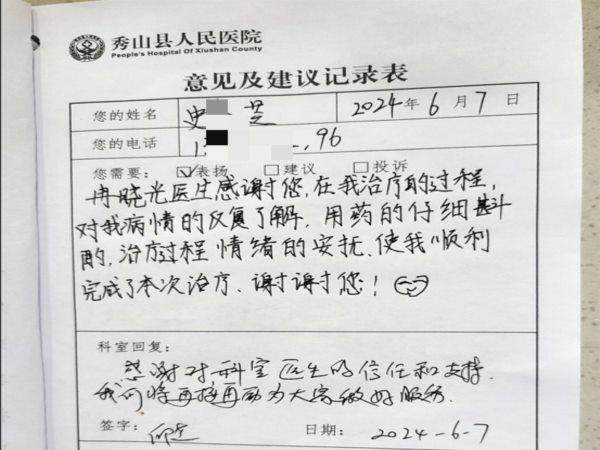 秀山县人民医院
People's Hospital Of Xiushan County
意见及建议记录表
您的姓名 史 芝 2024年6月7日
您的电话 1 96
您需要: ☑表扬 □建议 □投诉
冉晓光医生感谢您,在我治疗的过程,
对我病情的反复了解,用药的仔细斟斗
酌,治疗过程情绪的安抚,使我顺利
完成了本次治疗、谢谢谢您!
科室回复:
感谢对科室医生的信任和支持.
我们将再接再励为大家做好服务.
签字: 日期: 2024-6-7